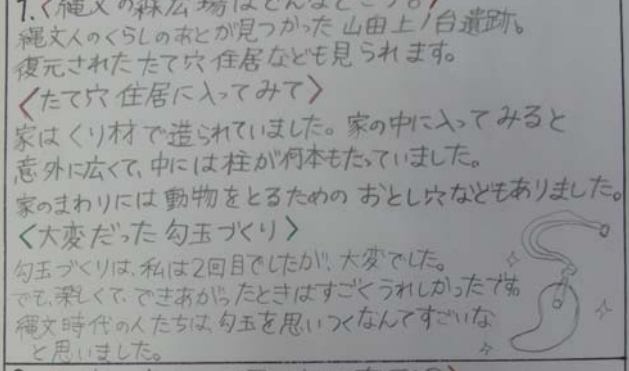 1.〈縄文の森広場はどんなところ。〉
縄文人のくらしのあとが見つかった山田上ノ台遺跡。
復元されたたて穴住居なども見られます。
〈たて穴住居に入ってみて〉
家はくり材で造られていました。家の中に入ってみると
意外に広くて、中には柱が何本もたっていました。
家のまわりには動物をとるためのおとし穴などもありました。
〈大変だった勾玉づくり〉
勾玉づくりは、私は2回目でしたが、大変でした。
でも、楽しくて、できあがったときはすごくうれしかったです。
縄文時代の人たちは、勾玉を思いつくなんてすごいな
と思いました。